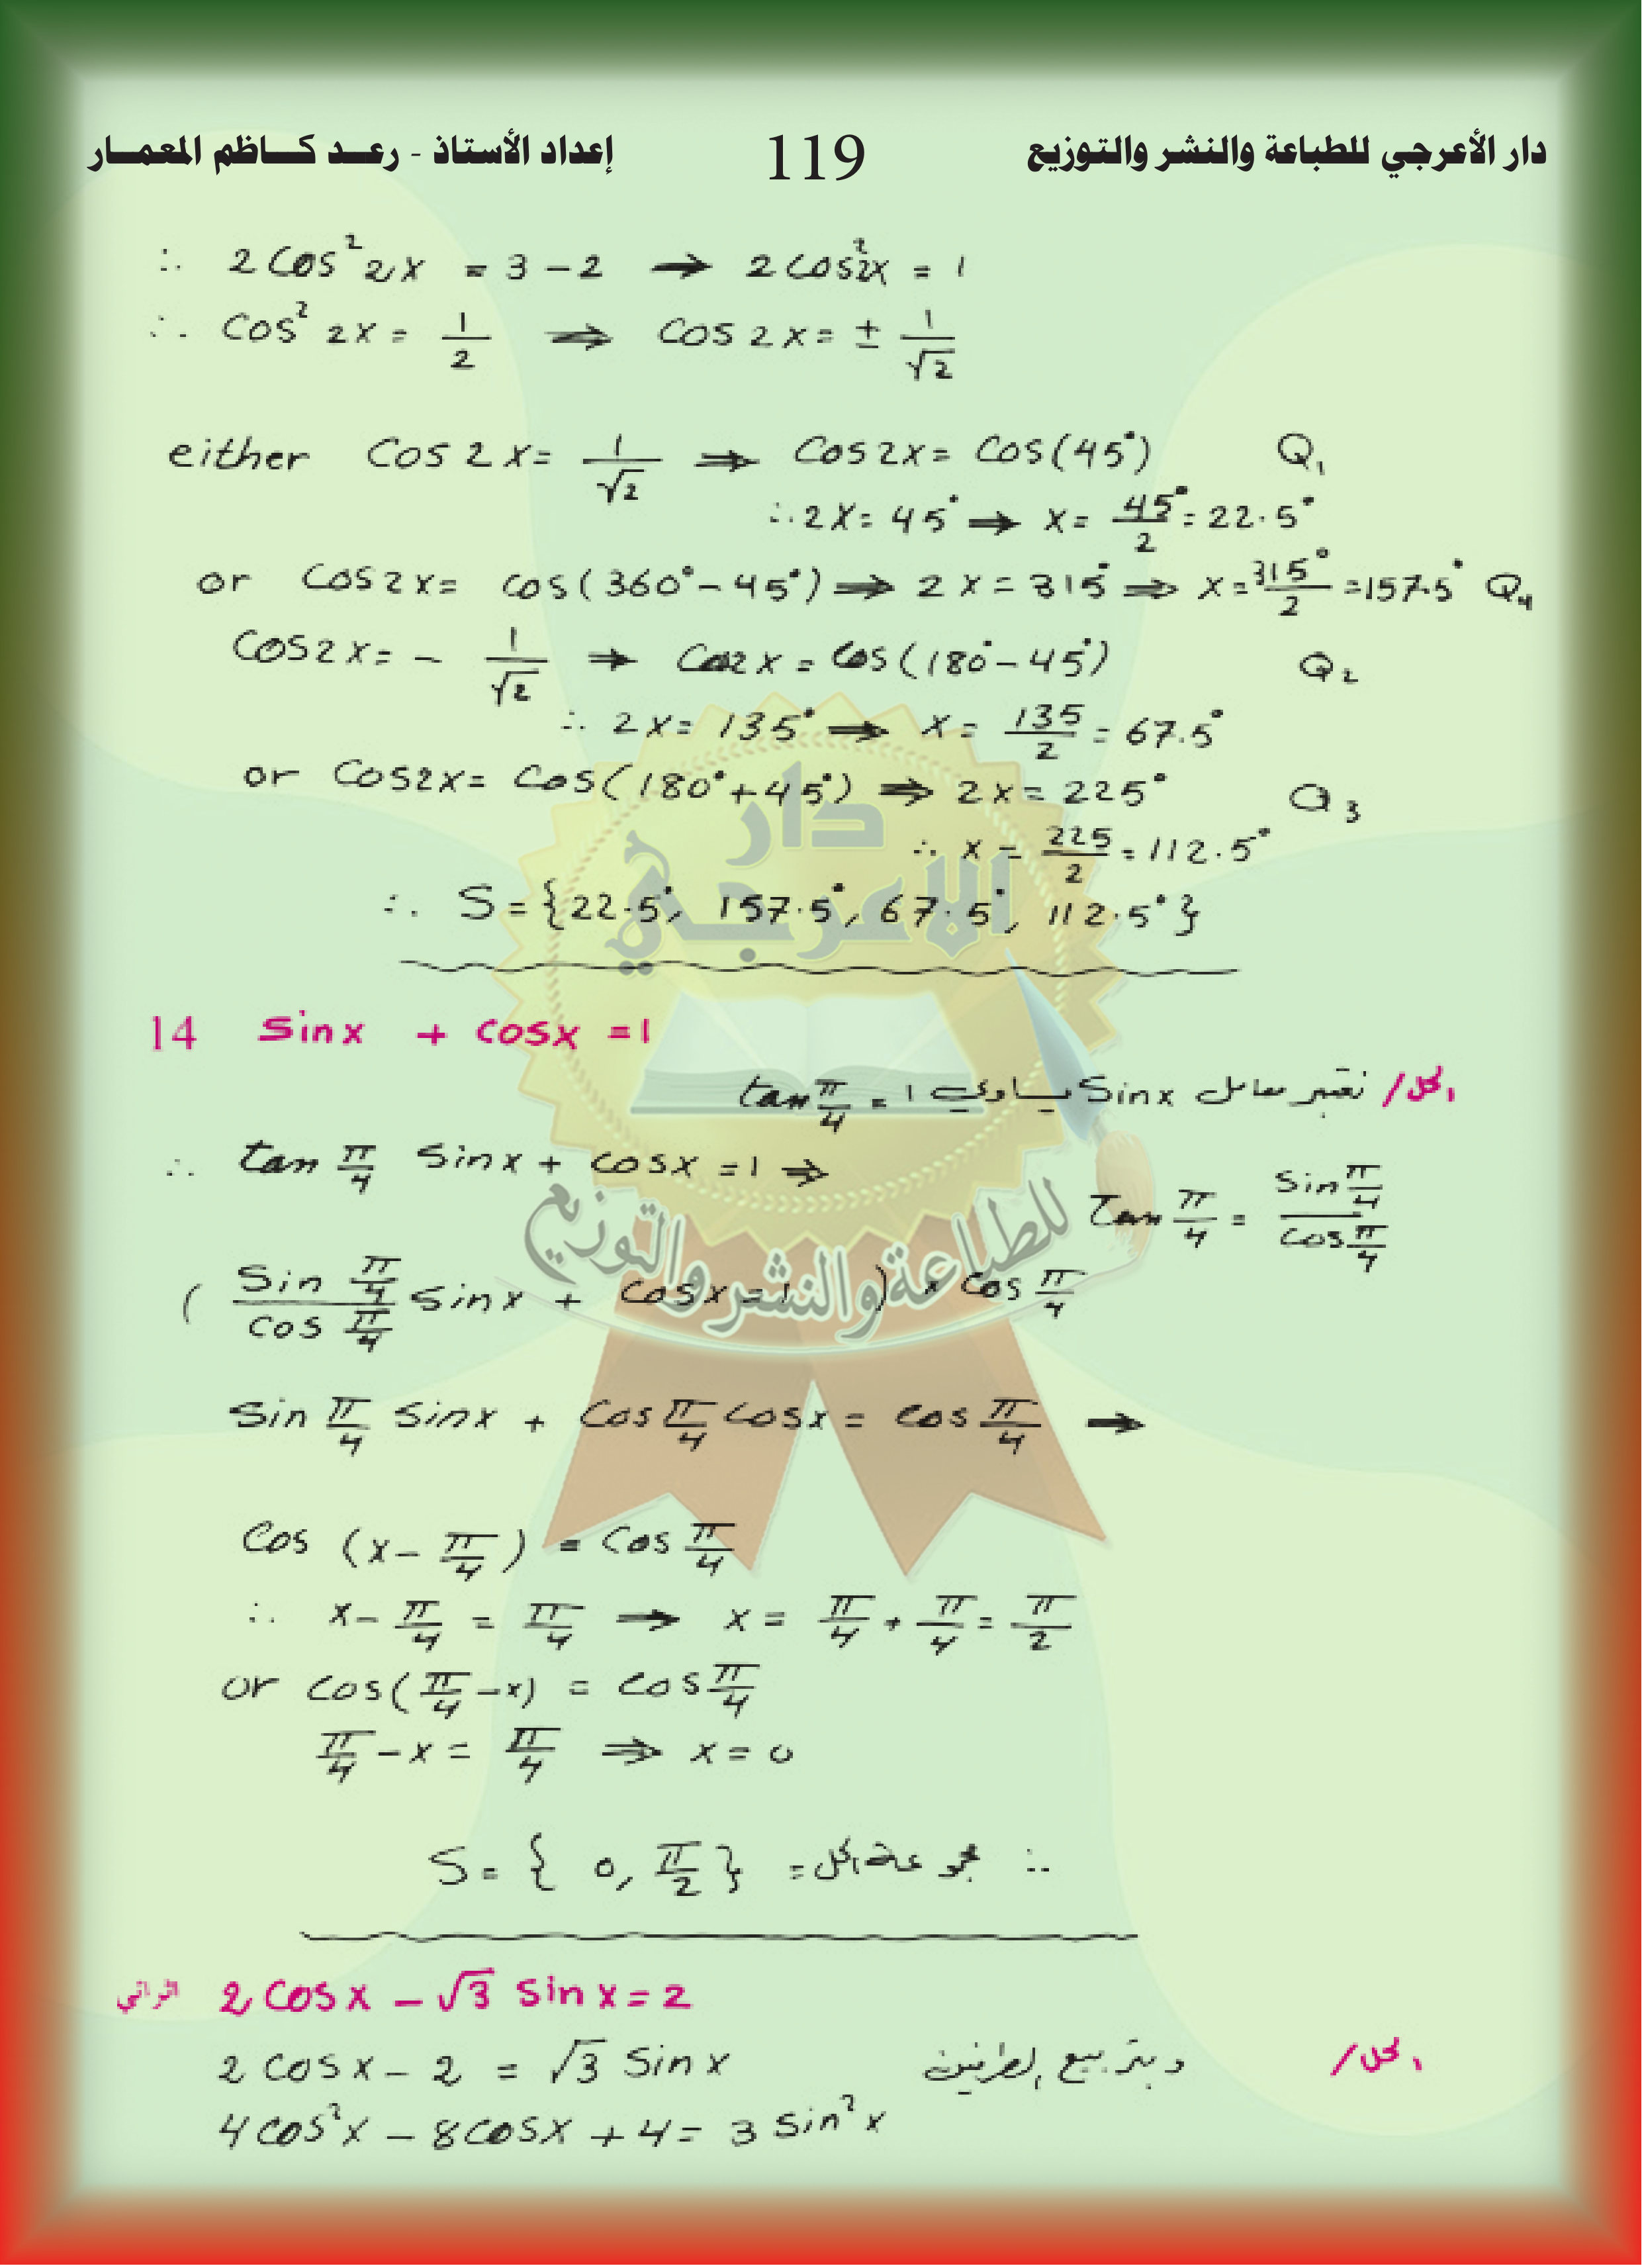 دار الأعرجي للطباعة والنشر والتوزيع 119 إعداد الأستاذ - رعـد كـاظم المعمـار
∴ 2 cos² 2x = 3 - 2 → 2 cos² 2x = 1
∴ cos² 2x = 1/2 ⇒ cos 2x = ± 1/√2
either cos 2x = 1/√2 ⇒ cos 2x = cos(45°) Q₁
∴ 2x = 45° ⇒ x = 45°/2 = 22.5°
or cos 2x = cos(360° - 45°) ⇒ 2x = 315° ⇒ x = 315°/2 = 157.5° Q₄
cos 2x = - 1/√2 ⇒ cos 2x = cos(180° - 45°) Q₂
∴ 2x = 135° ⇒ x = 135/2 = 67.5°
or cos 2x = cos(180° + 45°) ⇒ 2x = 225° Q₃
∴ x = 225/2 = 112.5°
∴ S = {22.5°, 157.5°, 67.5°, 112.5°}
دار
الاعرجي
للطباعة والنشر والتوزيع
14 sin x + cos x = 1
الحل/ نعتبر معامل sin x يساوي 1 = tan π/4
∴ tan π/4 sin x + cos x = 1 ⇒
tan π/4 = sin π/4 / cos π/4
( sin π/4 / cos π/4 sin x + cos x = 1 ) × cos π/4
sin π/4 sin x + cos π/4 cos x = cos π/4 →
cos (x - π/4) = cos π/4
∴ x - π/4 = π/4 → x = π/4 + π/4 = π/2
or cos(π/4 - x) = cos π/4
π/4 - x = π/4 ⇒ x = 0
∴ مجموعة الحل = S = { 0, π/2 }
2 cos x - √3 sin x = 2
الحل/ وبتربيع الطرفين 2 cos x - 2 = √3 sin x
4 cos² x - 8 cos x + 4 = 3 sin² x